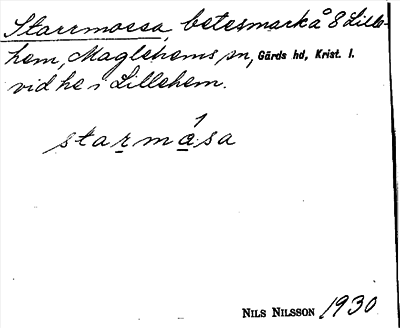 Starrmossa, betesmark å 8 Lille-
hem, Maglehems sn, Gärds hd, Krist. l.
vid he i Lillehem.
starmåsa
NILS NILSSON 1930